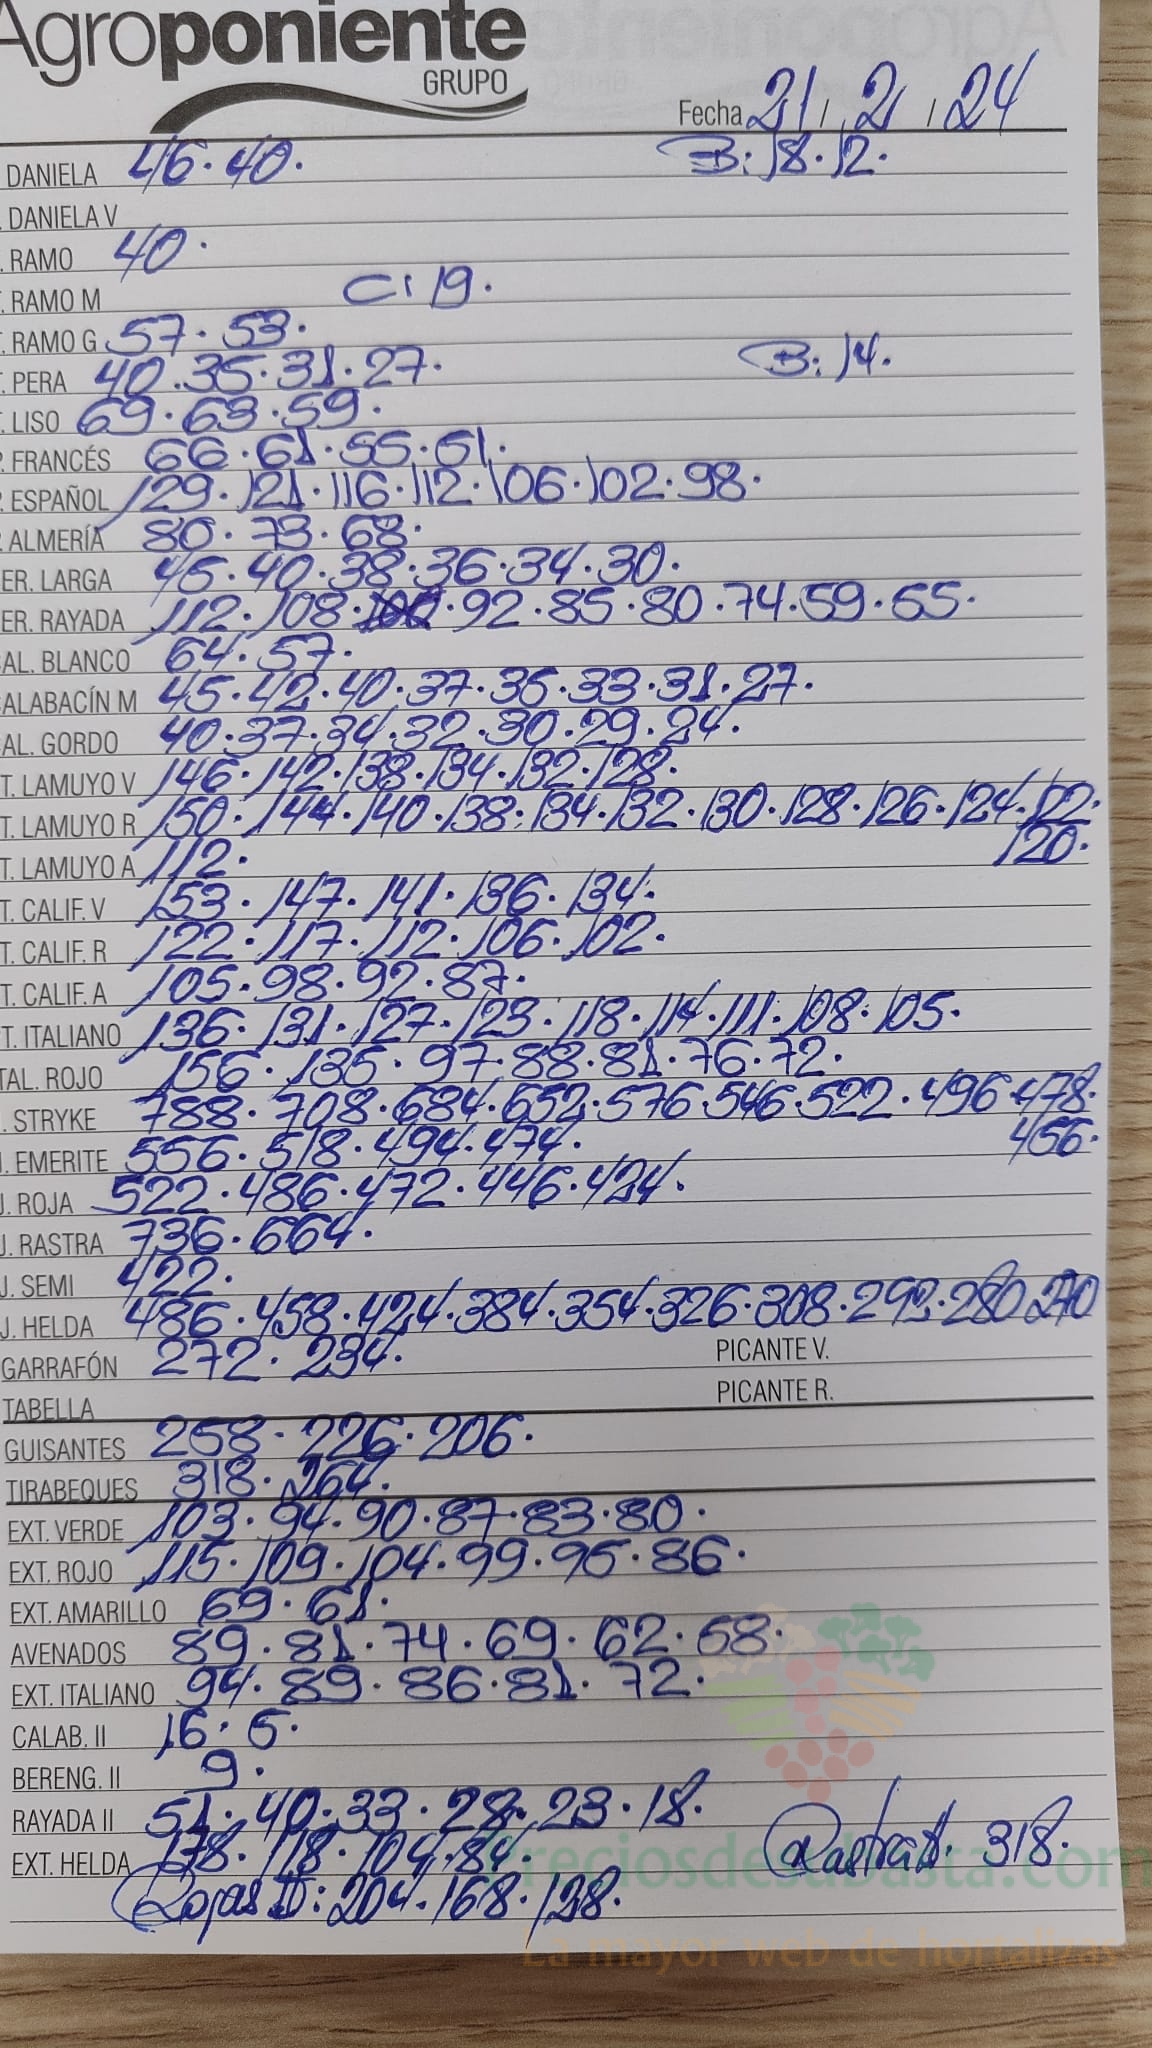 Agroponiente
GRUPO
Fecha 21 / 2 / 24
DANIELA 46. 40. B: 18. 12.
. DANIELA V
. RAMO 40.
T. RAMO M C: 19.
T. RAMO G 57. 53.
T. PERA 40. 35. 31. 27. B: 14.
T. LISO 69. 63. 59.
P. FRANCÉS 66. 61. 55. 51.
P. ESPAÑOL 129. 121. 116. 112. 106. 102. 98.
P. ALMERÍA 80. 73. 68.
ER. LARGA 45. 40. 38. 36. 34. 30.
ER. RAYADA 112. 108. 92. 85. 80. 74. 59. 55.
AL. BLANCO 64. 57.
ALABACÍN M 45. 42. 40. 37. 35. 33. 31. 27.
AL. GORDO 40. 37. 34. 32. 30. 29. 24.
T. LAMUYO V 146. 142. 138. 134. 132. 128.
T. LAMUYO R 150. 144. 140. 138. 134. 132. 130. 128. 126. 124. 122.
120.
T. LAMUYO A 112.
T. CALIF. V 153. 147. 141. 136. 134.
T. CALIF. R 122. 117. 112. 106. 102.
T. CALIF. A 105. 98. 92. 87.
PT. ITALIANO 136. 131. 127. 123. 118. 114. 111. 108. 105.
TAL. ROJO 156. 135. 97. 88. 81. 76. 72.
. STRYKE 788. 708. 684. 652. 576. 546. 522. 496. 478.
456.
J. EMERITE 556. 518. 494. 474.
J. ROJA 522. 486. 472. 446. 424.
J. RASTRA 736. 664.
J. SEMI 422.
J. HELDA 486. 458. 424. 384. 354. 326. 308. 292. 280. 270
GARRAFÓN 272. 234. PICANTE V.
TABELLA PICANTE R.
GUISANTES 258. 226. 206.
TIRABEQUES 318. 264.
EXT. VERDE 103. 94. 90. 87. 83. 80.
EXT. ROJO 115. 109. 104. 99. 95. 86.
EXT. AMARILLO 69. 61.
AVENADOS 89. 81. 74. 69. 62. 58.
EXT. ITALIANO 94. 89. 86. 81. 72.
CALAB. II 16. 5.
BERENG. II 9.
RAYADA II 51. 40. 33. 28. 23. 18.
EXT. HELDA 178. 118. 104. 84. Rastra II. 318.
Rojas II: 204. 168. 138.
preciosdesubasta.com
La mayor web de hortalizas